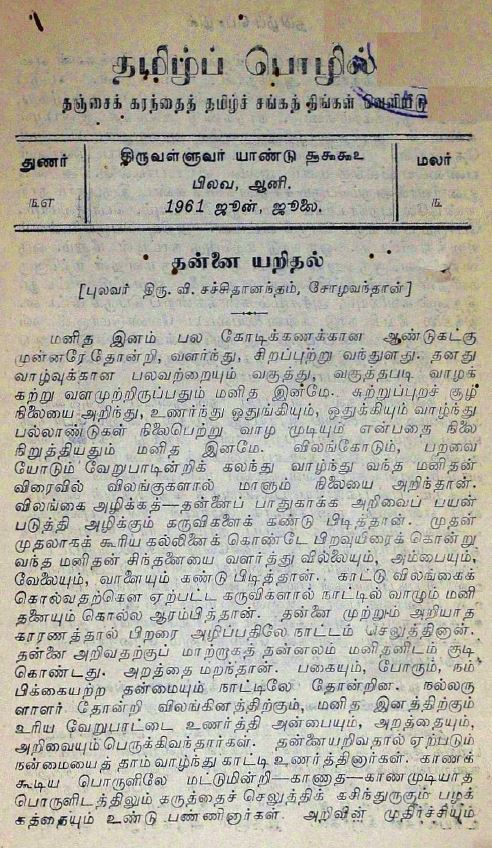 தமிழ்ப் பொழில்
தஞ்சைக் கரந்தைத் தமிழ்ச் சங்கத் திங்கள் வெளியீடு
துணர்
௩௭
திருவள்ளுவர் யாண்டு ௧௯௯௨
பிலவ, ஆனி.
1961 ஜூன், ஜூலை.
மலர்
௩
தன்னை யறிதல்
[புலவர் திரு. வி. சச்சிதானந்தம், சோழவந்தான்]
மனித இனம் பல கோடிக்கணக்கான ஆண்டுகட்கு
முன்னரே தோன்றி, வளர்ந்து, சிறப்புற்று வந்துளது. தனது
வாழ்வுக்கான பலவற்றையும் வகுத்து, வகுத்தபடி வாழக்
கற்று வளமுற்றிருப்பதும் மனித இனமே. சுற்றுப்புறச் சூழ்
நிலையை அறிந்து, உணர்ந்து ஒதுங்கியும், ஒதுக்கியும் வாழ்ந்து
பல்லாண்டுகள் நிலைபெற்று வாழ முடியும் என்பதை நிலை
நிறுத்தியதும் மனித இனமே. விலங்கோடும், பறவை
யோடும் வேறுபாடின்றிக் கலந்து வாழ்ந்து வந்த மனிதன்
விரைவில் விலங்குகளால் மாளும் நிலையை அறிந்தான்.
விலங்கை அழிக்கத்—தன்னைப் பாதுகாக்க அறிவைப் பயன்
படுத்தி அழிக்கும் கருவிகளைக் கண்டு பிடித்தான். முதன்
முதலாகக் கூரிய கல்லினைக் கொண்டே பிறவுயிரைக் கொன்று
வந்த மனிதன் சிந்தனையை வளர்த்து வில்லையும், அம்பையும்,
வேலையும், வாளையும் கண்டு பிடித்தான். காட்டு விலங்கைக்
கொல்வதற்கென ஏற்பட்ட கருவிகளால் நாட்டில் வாழும் மனி
தனையும் கொல்ல ஆரம்பித்தான். தன்னை முற்றும் அறியாத
காரணத்தால் பிறரை அழிப்பதிலே நாட்டம் செலுத்தினான்.
தன்னை அறிவதற்குப் மாற்றாகத் தன்னலம் மனிதனிடம் குடி
கொண்டது. அறத்தை மறந்தான். பகையும், போரும், நம்
பிக்கையற்ற தன்மையும் நாட்டிலே தோன்றின. நல்லரு
ளாளர் தோன்றி விலங்கினத்திற்கும், மனித இனத்திற்கும்
உரிய வேறுபாட்டை உணர்த்தி அன்பையும், அறத்தையும்,
அறிவையும் பெருக்கிவந்தார்கள். தன்னையறிவதால் ஏற்படும்
நன்மையைத் தாம் வாழ்ந்து காட்டி உணர்த்தினார்கள். காணக்
கூடிய பொருளிலே மட்டுமின்றி—காணாத—காணமுடியாத
பொருளிடத்திலும் கருத்தைச் செலுத்திக் கசிந்துருகும் பழக்
கத்தையும் உண்டு பண்ணினார்கள். அறிவின் முதிர்ச்சியும்